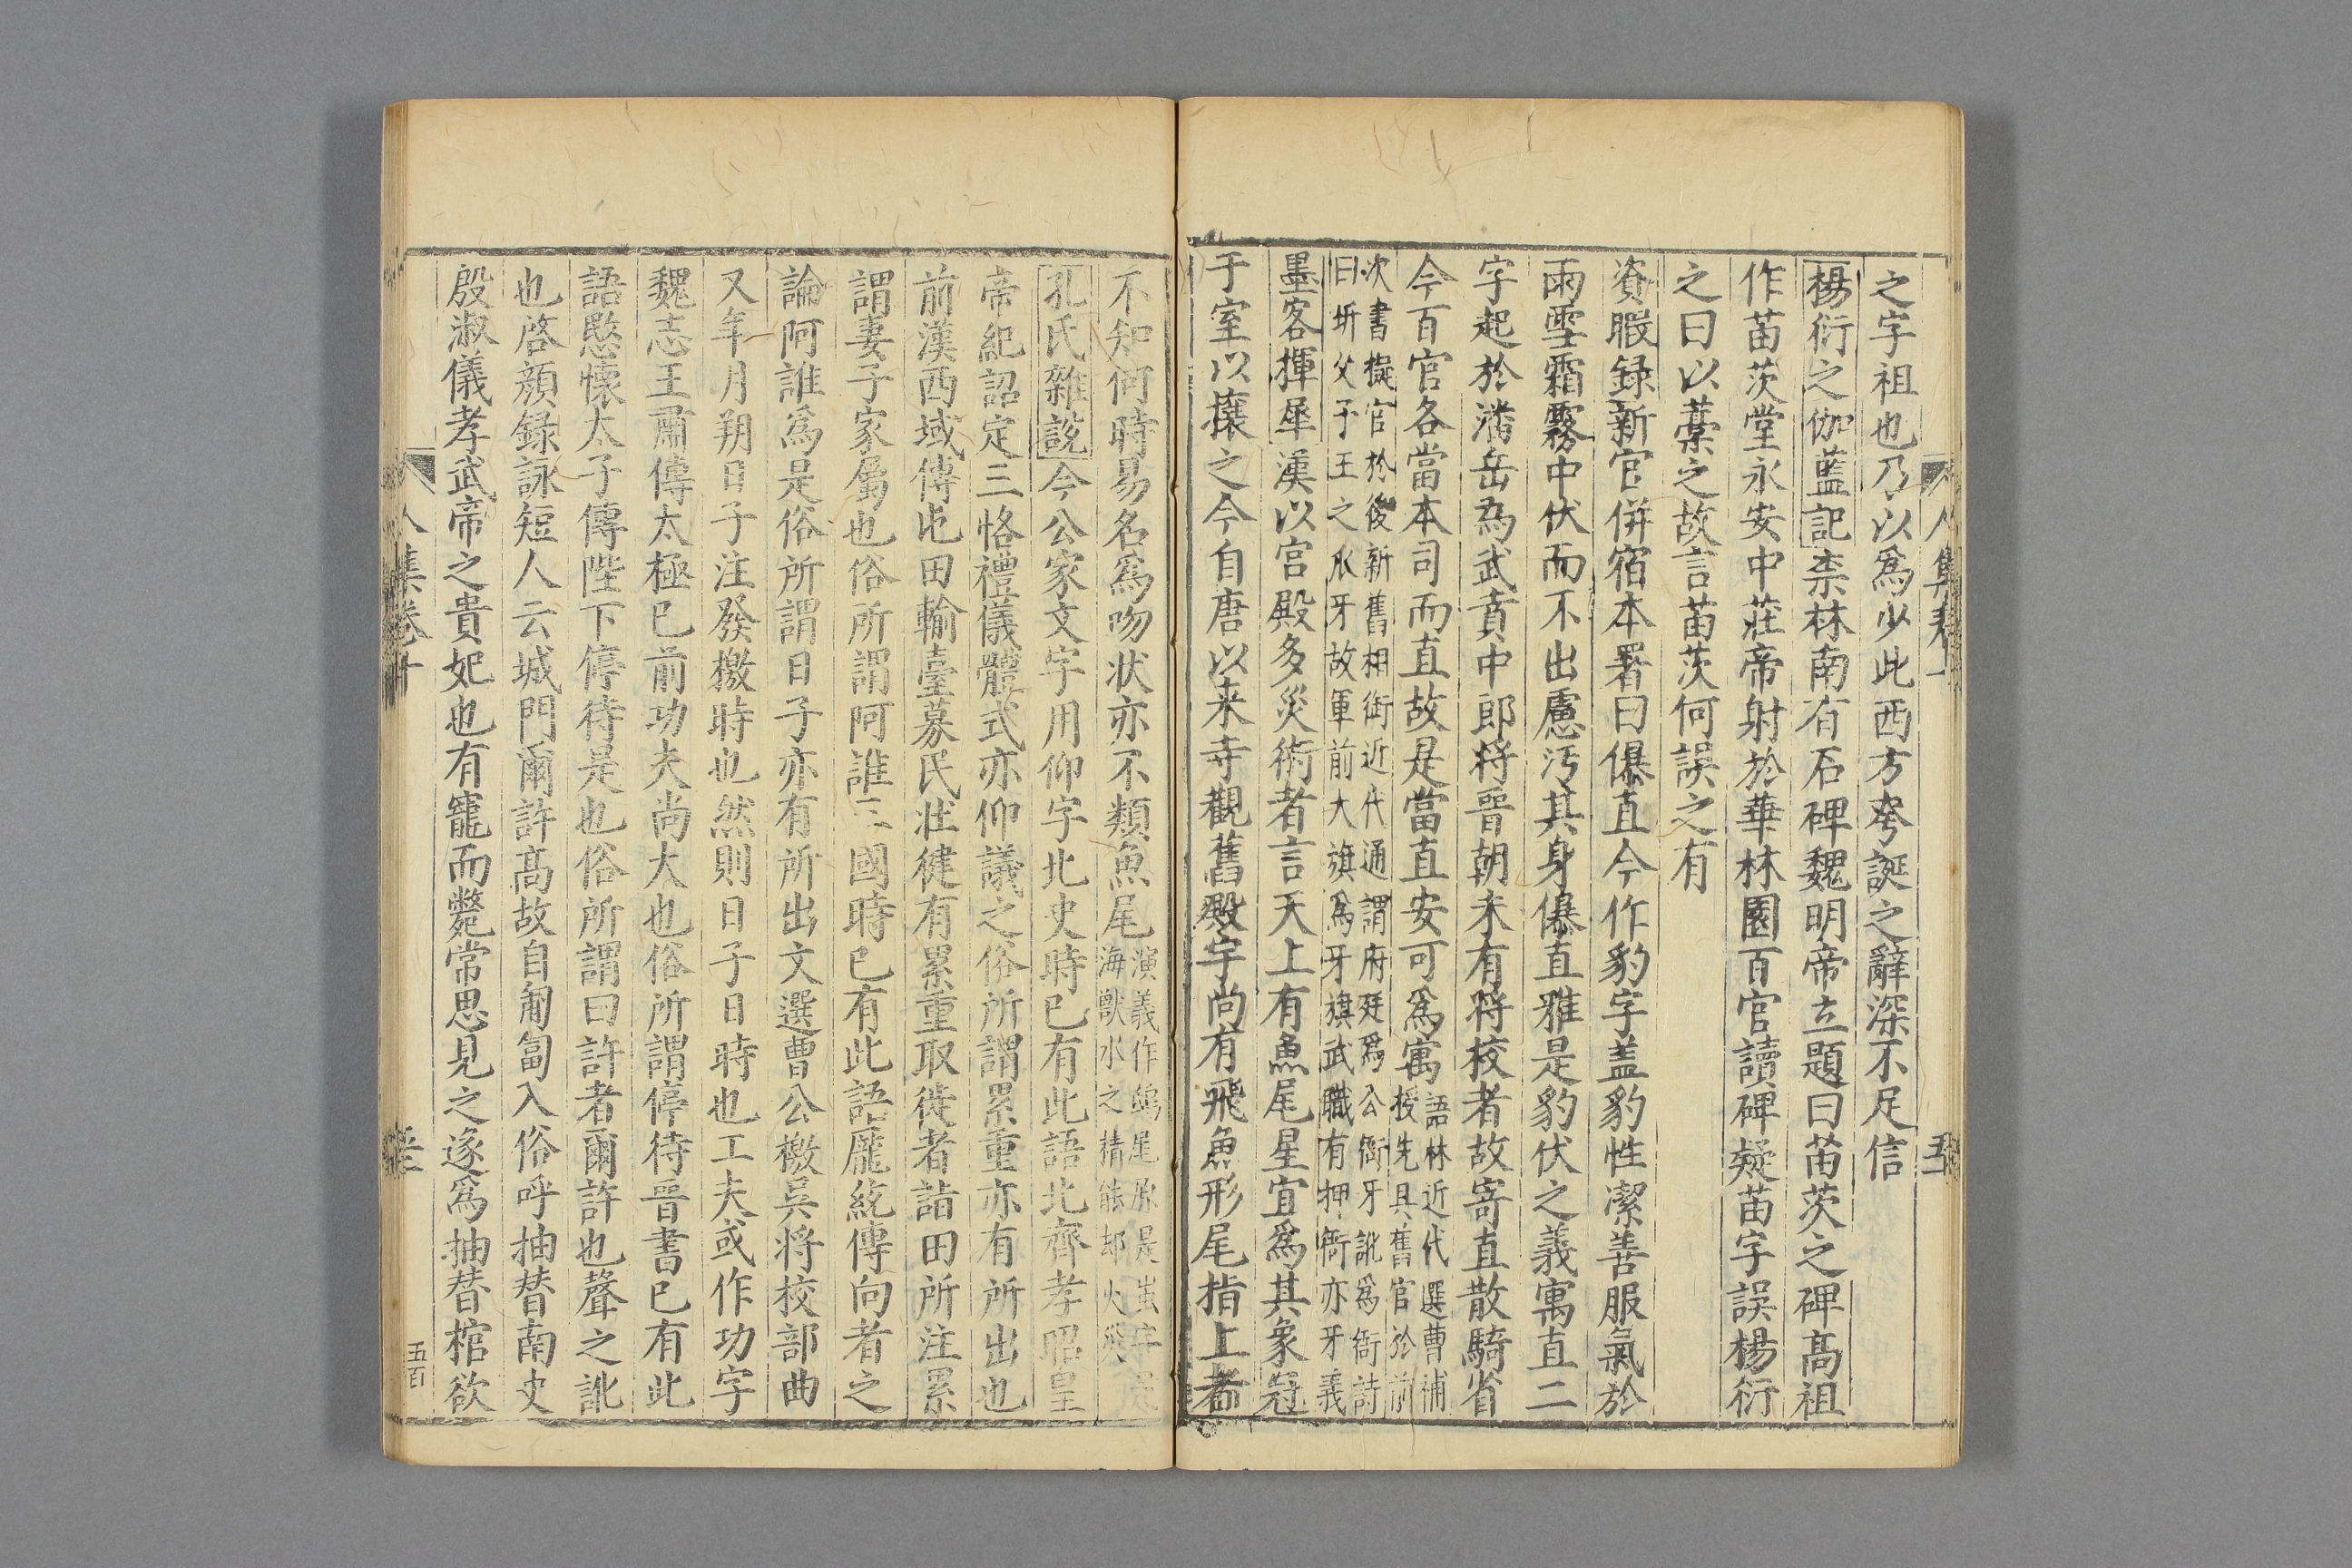 之字祖也乃以爲少此西方夸誕之辭深不足信
楊衒之伽藍記柰林南有石碑魏明帝立題曰苗茨之碑高祖
作苗茨堂永安中莊帝射於華林園百官讀碑疑苗字誤楊衒
之曰以蒿之故言苗茨何誤之有
資暇録新官併宿本署曰儤直今作豹字盖豹性潔善服氣於
雨雪霜霧中伏而不出慮汚其身儤直雅是豹伏之義寓直二
字起於潘岳為武賁中郎將晉朝未有將校者故寄直散騎省
今百官各當本司而直故是當直安可爲寓
語林近代選曹補
授先具舊官於前
次書擬官於後新舊相銜近代通謂府廷爲公衙牙訛爲衙詩
曰圻父予王之爪牙故軍前大旗爲牙旗武職有押衙亦牙義
墨客揮犀漢以宮殿多災術者言天上有魚尾星宜爲其象冠
于室以攘之今自唐以来寺觀舊殿宇尚有飛魚形尾指上者
不知何時易名爲吻状亦不類魚尾
演義作鴟尾原是蚩字是
海獸水之精能却火災
孔氏雜說今公家文字用仰字北史時已有此語北齊孝昭皇
帝紀詔定三恪禮儀體式亦仰議之俗所謂累重亦有所出也
前漢西域傳屯田輪臺募民壯健有累重取徙者詣田所注累
謂妻子家屬也俗所謂阿誰三國時已有此語龐統傳向者之
論阿誰爲是俗所謂日子亦有所出文選曹公檄吳將校部曲
又年月朔日子注發檄時也然則日子日時也工夫或作功字
魏志王肅傳太極已前功夫尚大也俗所謂停待晉書已有此
語愍懷太子傳陛下停待是也俗所謂曰許者爾許也聲之訛
也啓顔録詠短人云城門爾許高故自匍匐入俗呼抽替南史
殷淑儀孝武帝之貴妃也有寵而斃常思見之遂爲抽替棺欲
人集卷十
五百